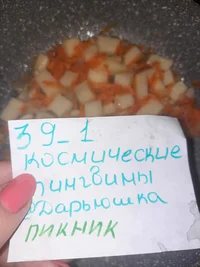 39_1
космические
пингвины
Дарьюшка
ПИКНИК